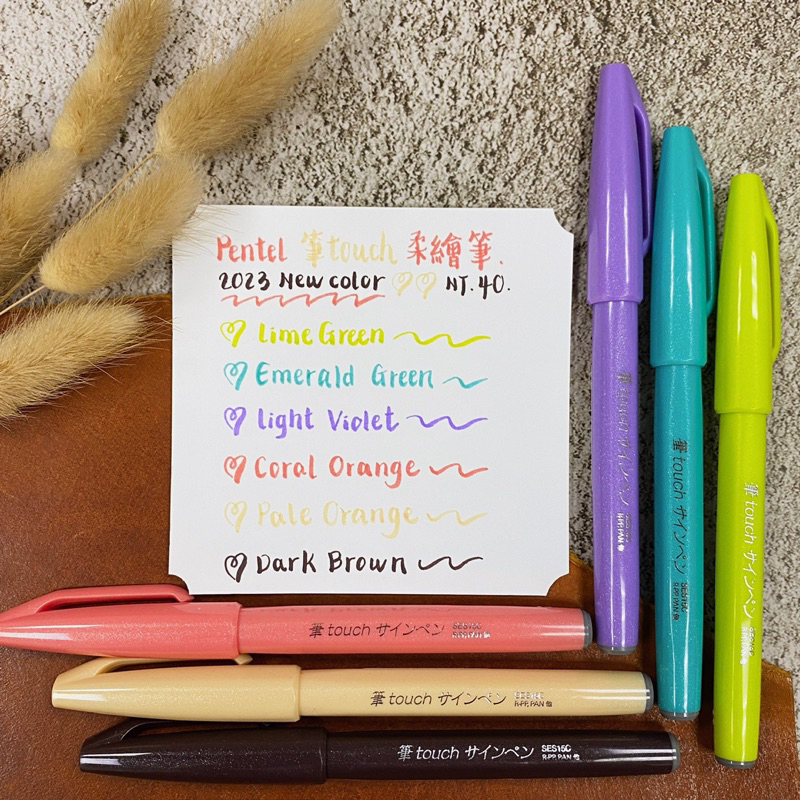 Pentel 筆touch 柔繪筆.
2023 New color NT.40.
Lime Green
Emerald Green
Light Violet
Coral Orange
Pale Orange
Dark Brown
筆touch サインペン SES15C
R-PP,PAN
筆touch サインペン SES15C
R-PP,PAN
筆touch サインペン SES15C
R-PP,PAN
筆touch サインペン
R-PP,PAN
筆touch サインペン SES15C
R-PP,PAN
筆touch サインペン SES15C
R-PP,PAN